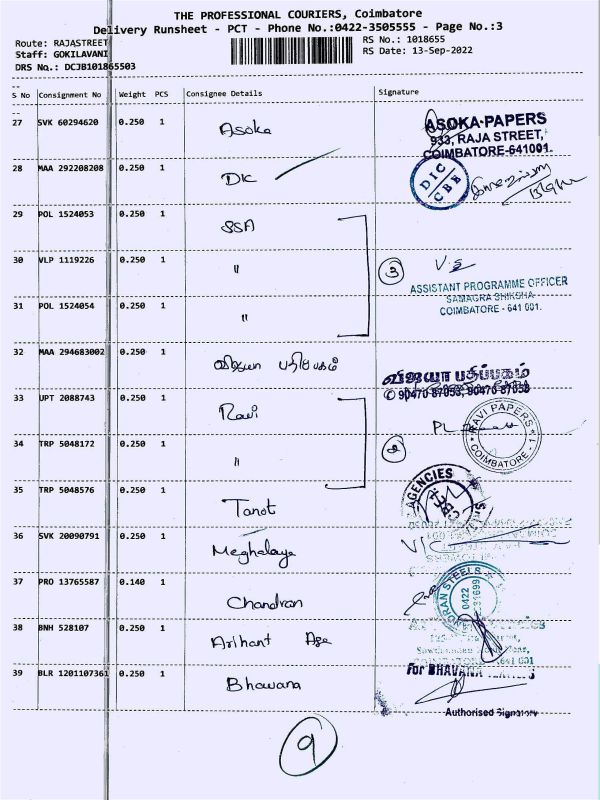 THE PROFESSIONAL COURIERS, Coimbatore
Delivery Runsheet - PCT - Phone No.:0422-3505555 - Page No.:3
Route: RAJASTREET
Staff: GOKILAVANI
DRS No.: DCJB101865503
RS No.: 1018655
RS Date: 13-Sep-2022
S No Consignment No Weight PCS Consignee Details Signature
27 SVK 60294620 0.250 1 Asoka
ASOKA PAPERS
933, RAJA STREET,
COIMBATORE-641001.
28 MAA 292208208 0.250 1 DIC
DIC
CBE
29 POL 1524053 0.250 1 SSA
30 VLP 1119226 0.250 1 "
3
ASSISTANT PROGRAMME OFFICER
SAMAGRA SHIKSHA
COIMBATORE - 641 001.
31 POL 1524054 0.250 1 "
32 MAA 294683002 0.250 1 விஜயா பதிப்பகம்
விஜயா பதிப்பகம்
✆ 90470 87053, 90470 87058
33 UPT 2088743 0.250 1 Ravi
RAVI PAPERS
COIMBATORE - 1
34 TRP 5048172 0.250 1 "
2
35 TRP 5048576 0.250 1 Tanot
AGENCIES
36 SVK 20090791 0.250 1 Meghalaya
37 PRO 13765587 0.140 1 Chandran
STEELS
0422
38 BNH 528107 0.250 1 Arihant Age
641 001
39 BLR 1201107361 0.250 1 Bhavana
For BHAVANA
Authorised Signatory
9